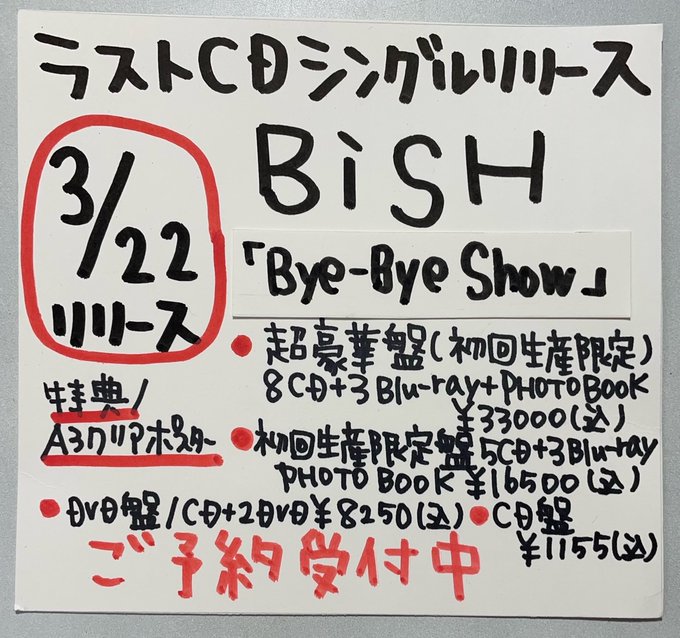 ラストCDシングルリリース
3/22
リリース
BiSH
「Bye-Bye Show」
特典/
A3クリアポスター
●超豪華盤(初回生産限定)
8CD+3Blu-ray+PHOTOBOOK
¥33000(込)
●初回生産限定盤5CD+3Blu-ray
PHOTO BOOK ¥16500(込)
●DVD盤/CD+2DVD¥8250(込)
●CD盤
¥1155(込)
ご予約受付中